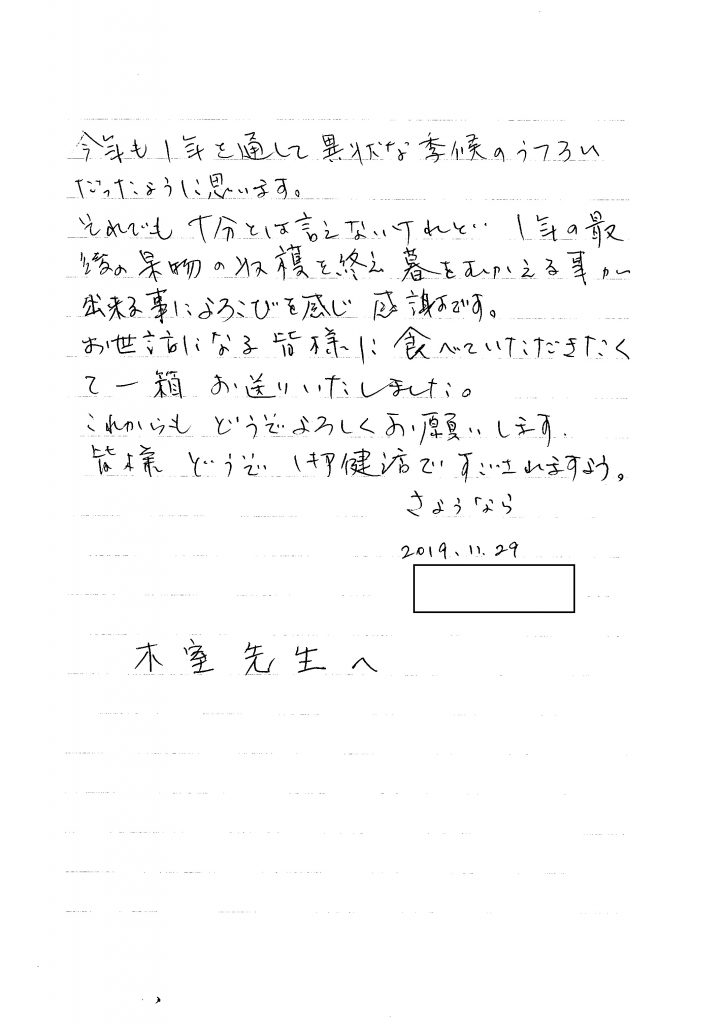 今年も1年を通して異状な季候のうつろい
だったように思います。
それでも十分とは言えないけれど‥1年の最
後の果物の収穫を終え暮をむかえる事が
出来る事によろこびを感じ感謝です。
お世話になる皆様に食べていただきたく
て一箱お送りいたしました。
これからもどうぞよろしくお願いします.
皆様どうぞ御健活ですごされますよう。
さようなら
2019.11.29
木室先生へ